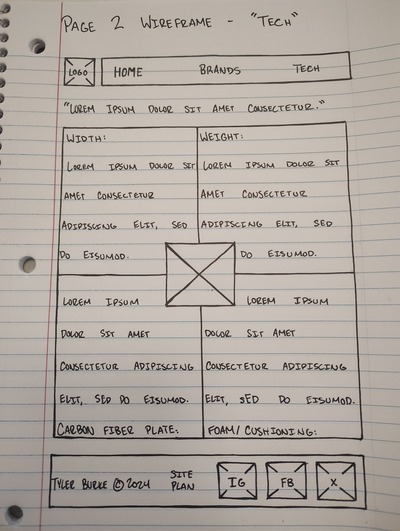 PAGE 2 WIREFRAME - "TECH"
LOGO HOME BRANDS TECH
"LOREM IPSUM DOLOR SIT AMET CONSECTETUR."
WIDTH:
LOREM IPSUM DOLOR SIT
AMET CONSECTETUR
ADIPISCING ELIT, SED
DO EISUMOD.
WEIGHT:
LOREM IPSUM DOLOR SIT
AMET CONSECTETUR
ADIPISCING ELIT, SED
DO EISUMOD.
LOREM IPSUM
DOLOR SIT AMET
CONSECTETUR ADIPISCING
ELIT, SED DO EISUMOD.
CARBON FIBER PLATE:
LOREM IPSUM
DOLOR SIT AMET
CONSECTETUR ADIPISCING
ELIT, SED DO EISUMOD.
FOAM/CUSHIONING:
TYLER BURKE © 2024
SITE
PLAN
IG FB X